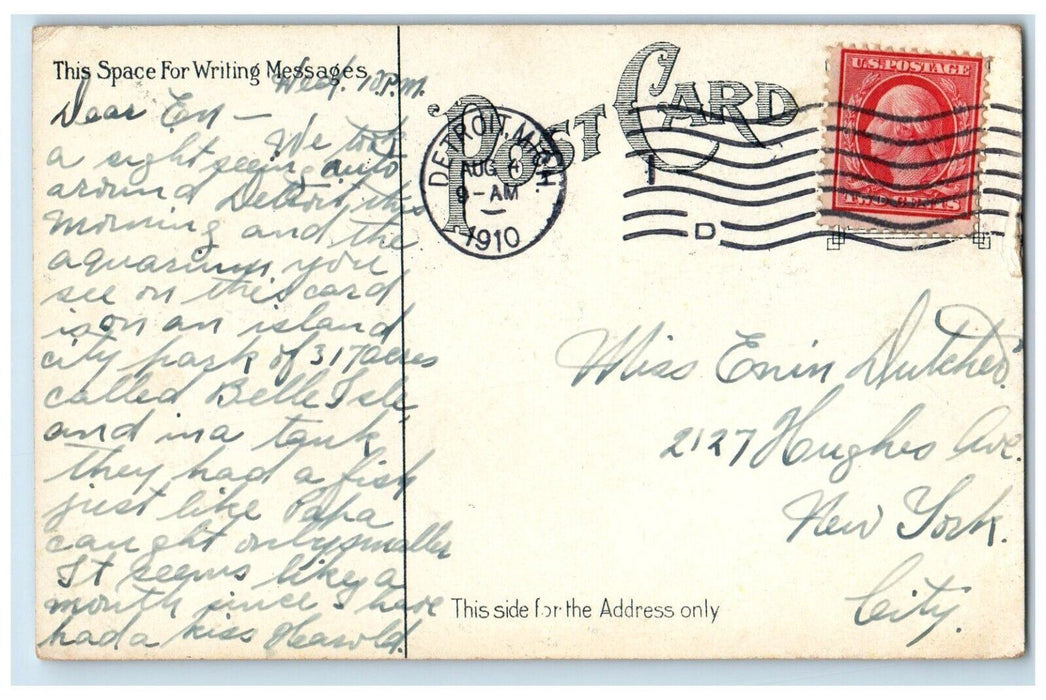 This Space For Writing Messages
Wed. 10 P.M.
Dear En —
We took
a sight seeing auto
around Detroit this
morning and the
aquarium you
see on this card
is on an island
city park of 317 acres
called Belle Isle
and in a tank
they had a fish
just like Papa
caught only smaller
It seems like a
month since I have
had a kiss Harold.
POST CARD
DETROIT, MICH.
AUG
9 - AM
1910
D
U.S. POSTAGE
TWO CENTS
Miss Enin Dutcher
2127 Hughes Ave.
New York.
City.
This side for the Address only